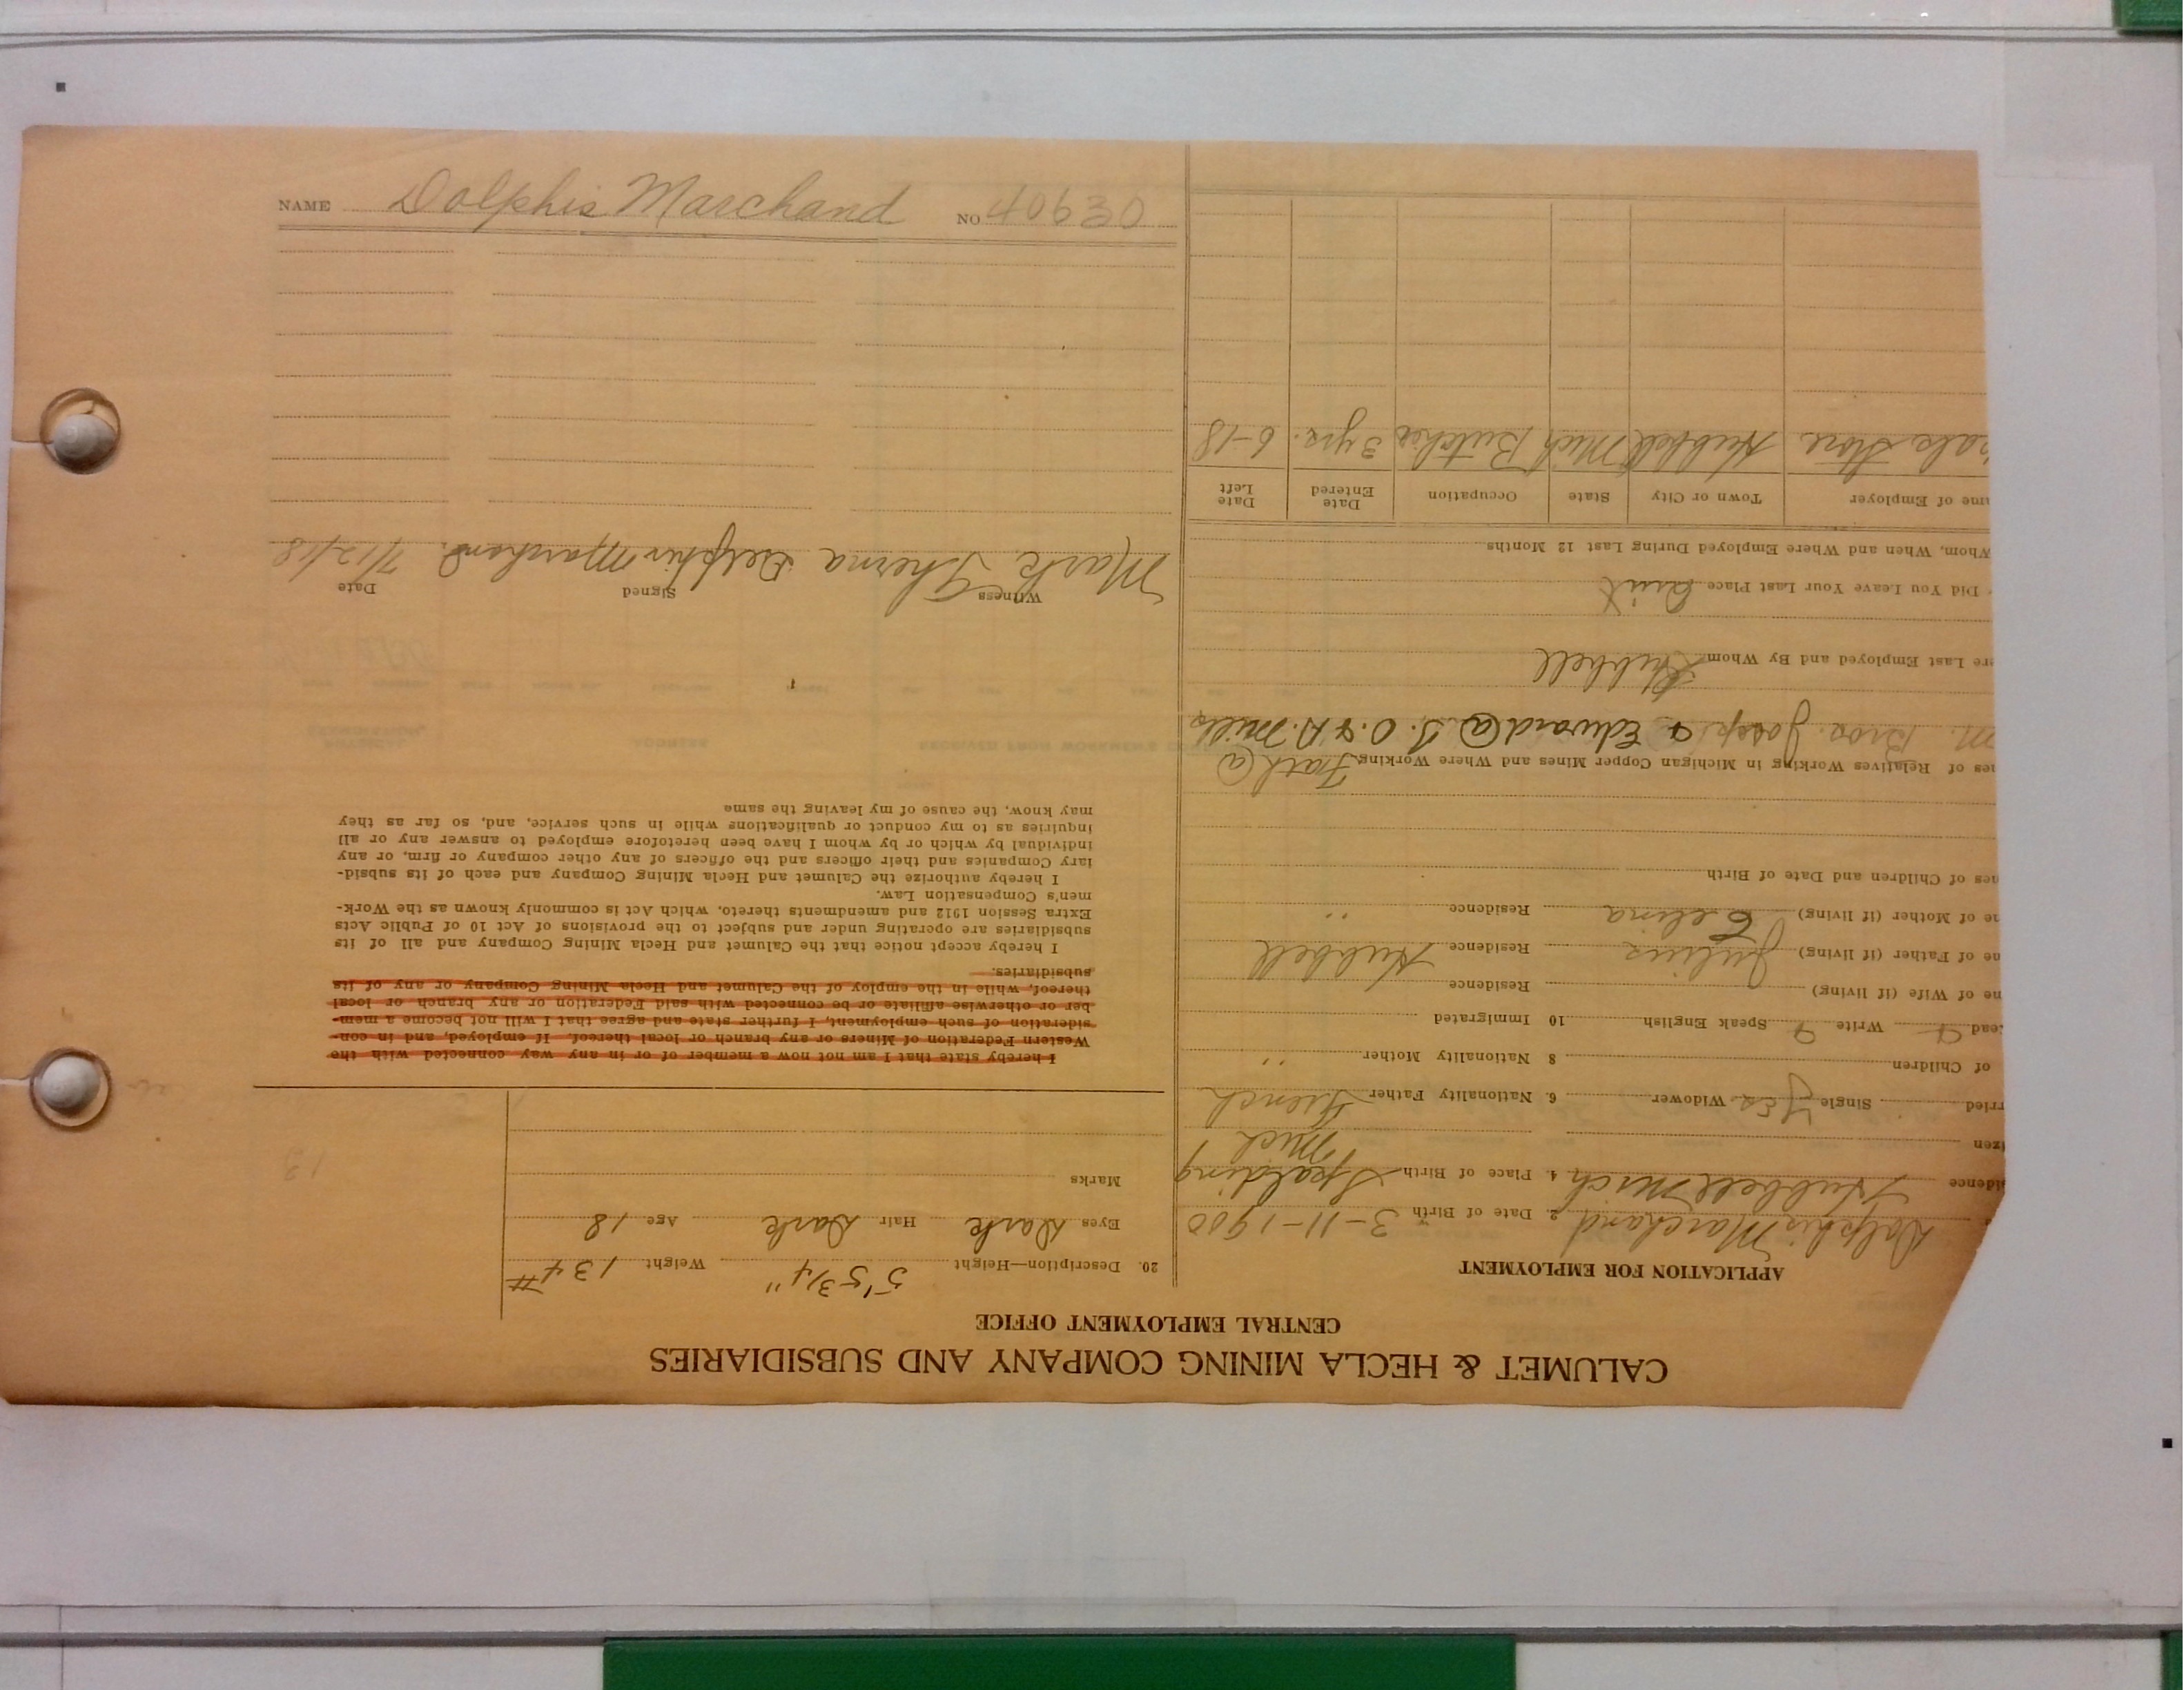 CALUMET & HECLA MINING COMPANY AND SUBSIDIARIES
CENTRAL EMPLOYMENT OFFICE
APPLICATION FOR EMPLOYMENT
Dolphis Marchand 2. Date of Birth 3-11-1900
idence Hubbell Mich 4. Place of Birth Spalding
Mich
izen
rried Single Yes Widower 6. Nationality Father French
of Children 8 Nationality Mother "
ead Write Speak English 10 Immigrated
ne of Wife (if living) Residence
ne of Father (if living) Julius Residence Hubbell
ne of Mother (if living) Celina Residence "
nes of Children and Date of Birth
nes of Relatives Working in Michigan Copper Mines and Where Working Fath @
M. Bros. Joseph & Edward @ J. O. & A. Mills
ere Last Employed and By Whom Hubbell
Did You Leave Your Last Place Quit
Whom, When and Where Employed During Last 12 Months
me of Employer Town or City State Occupation Date Entered Date Left
Store Hubbell Mich Butcher 3 yrs. 6-18
20. Description—Height 5' 5 3/4" Weight 134#
Eyes Dark Hair Dark Age 18
Marks
I hereby state that I am not now a member of or in any way connected with the
Western Federation of Miners or any branch or local thereof. If employed, and in con-
sideration of such employment, I further state and agree that I will not become a mem-
ber or otherwise affiliate or be connected with said Federation or any branch or local
thereof, while in the employ of the Calumet and Hecla Mining Company or any of its
subsidiaries.
I hereby accept notice that the Calumet and Hecla Mining Company and all of its
subsidiaries are operating under and subject to the provisions of Act 10 of Public Acts
Extra Session 1912 and amendments thereto, which Act is commonly known as the Work-
men's Compensation Law.
I hereby authorize the Calumet and Hecla Mining Company and each of its subsid-
iary Companies and their officers and the officers of any other company or firm, or any
individual by which or by whom I have been heretofore employed to answer any or all
inquiries as to my conduct or qualifications while in such service, and, so far as they
may know, the cause of my leaving the same
Witness Signed Date
Mark Therna Delphis Marchand. 7/12/18
NAME Dolphis Marchand NO 40630